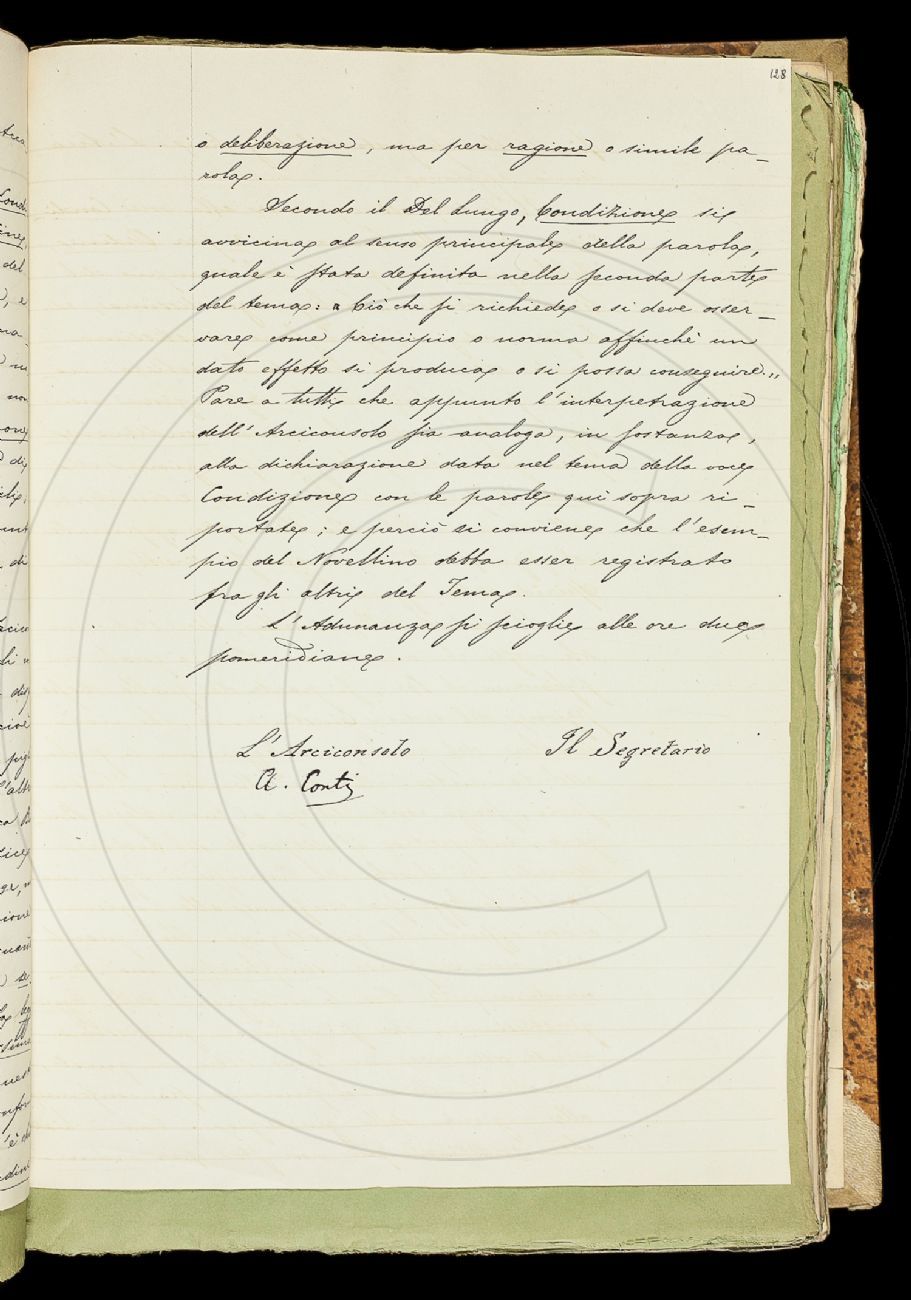 128
o deliberazione, ma per ragione o simile pa-
rola.
Secondo il Del Lungo, Condizione si
avvicina al senso principale della parola,
quale è stata definita nella seconda parte
del tema: "Ciò che si richiede o si deve osser-
vare come principio o norma affinché un
dato effetto si produca o si possa conseguire."
Pare a tutti che appunto l'interpetrazione
dell'Arciconsolo sia analoga, in sostanza,
alla dichiarazione data nel tema della voce
Condizione con le parole qui sopra ri-
portate; e perciò si conviene che l'esem-
pio del Novellino debba esser registrato
fra gli altri del Tema.
L'Adunanza si scioglie alle ore due
pomeridiane.
L'Arciconsolo
Il Segretario
A. Conti